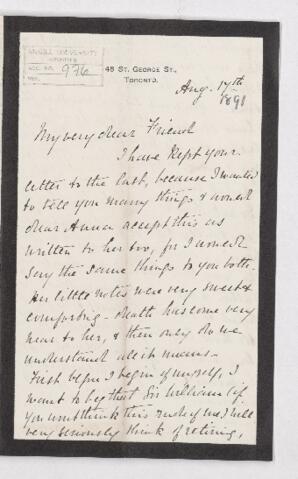 McGILL UNIVERSITY
ACC. NO. 926
REF.
48 ST. GEORGE ST.,
TORONTO.
Aug. 17th
1891
My very dear Friend
I have kept your
letter to the last, because I wanted
to tell you many things & would
dear Anna accept this as
written to her too, for I would
say the same things to you both.
Her little notes were very sweet &
comforting - death has come very
near to her, & then only do we
understand all it means -
Just before I begin of myself, I
want to beg that Sir William (if
you wont think this rude of me) will
very seriously think of retiring,